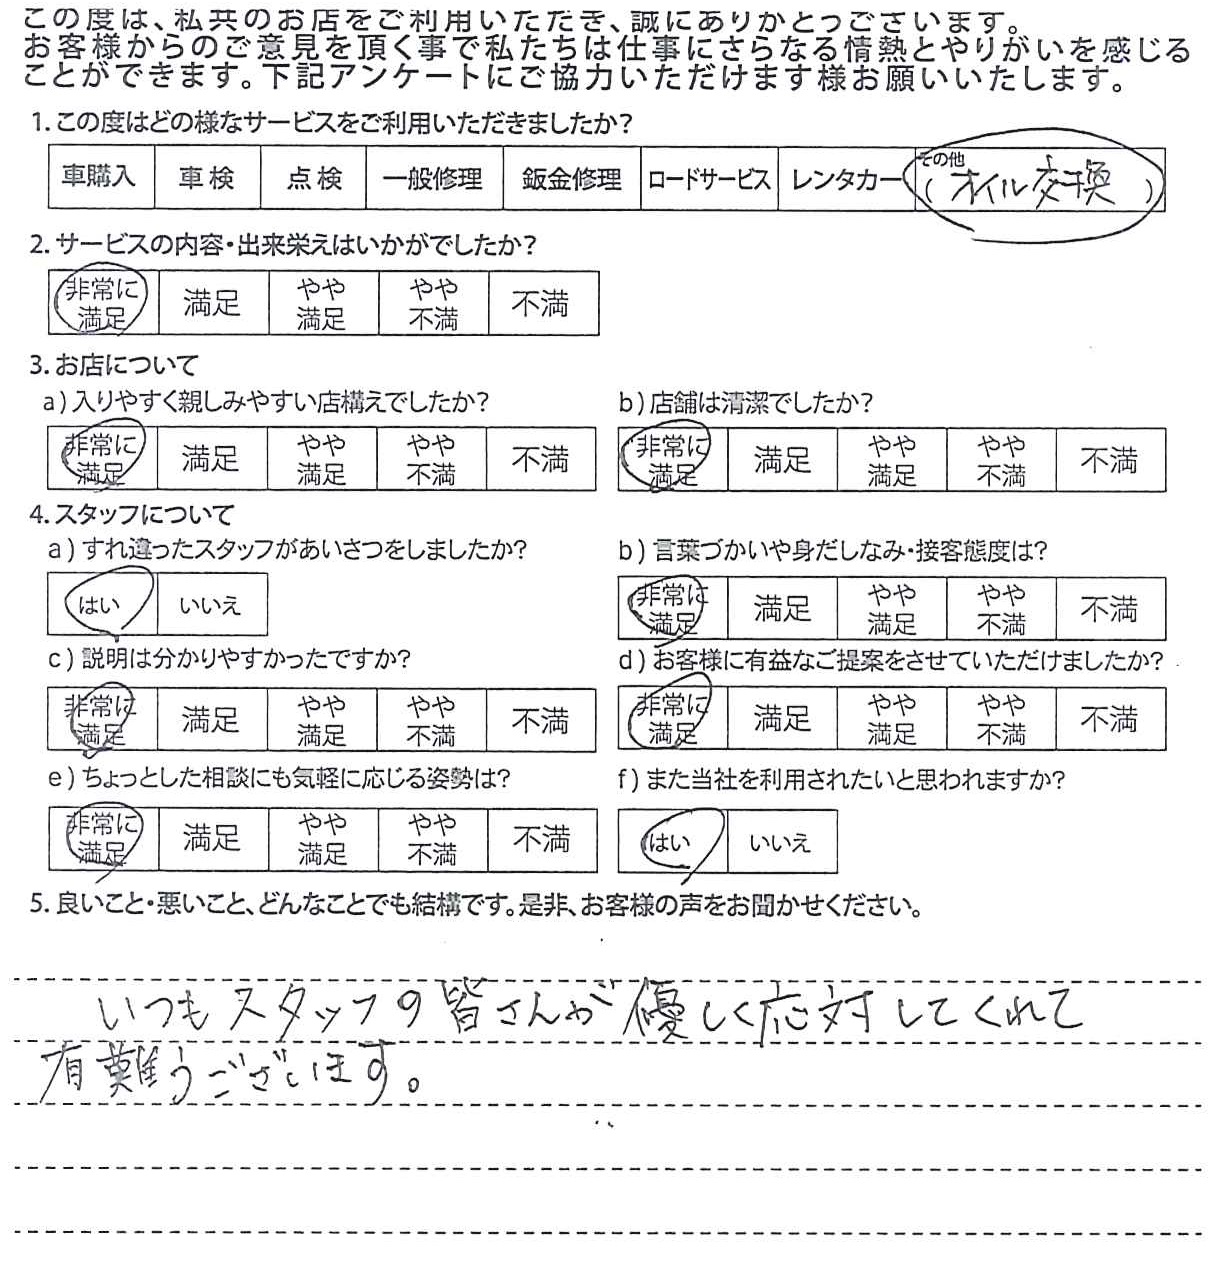 この度は、私共のお店をご利用いただき、誠にありがとうございます。
お客様からのご意見を頂く事で私たちは仕事にさらなる情熱とやりがいを感じる
ことができます。下記アンケートにご協力いただけます様お願いいたします。
1.この度はどの様なサービスをご利用いただきましたか?
車購入 車検 点検 一般修理 鈑金修理 ロードサービス レンタカー その他(オイル交換)
2.サービスの内容・出来栄えはいかがでしたか?
非常に満足 満足 やや満足 やや不満 不満
3.お店について
a)入りやすく親しみやすい店構えでしたか? b)店舗は清潔でしたか?
非常に満足 満足 やや満足 やや不満 不満 非常に満足 満足 やや満足 やや不満 不満
4.スタッフについて
a)すれ違ったスタッフがあいさつをしましたか? b)言葉づかいや身だしなみ・接客態度は?
はい いいえ 非常に満足 満足 やや満足 やや不満 不満
c)説明は分かりやすかったですか? d)お客様に有益なご提案をさせていただけましたか?
非常に満足 満足 やや満足 やや不満 不満 非常に満足 満足 やや満足 やや不満 不満
e)ちょっとした相談にも気軽に応じる姿勢は? f)また当社を利用されたいと思われますか?
非常に満足 満足 やや満足 やや不満 不満 はい いいえ
5.良いこと・悪いこと、どんなことでも結構です。是非、お客様の声をお聞かせください。
いつもスタッフの皆さんが優しく応対してくれて
有難うございます。